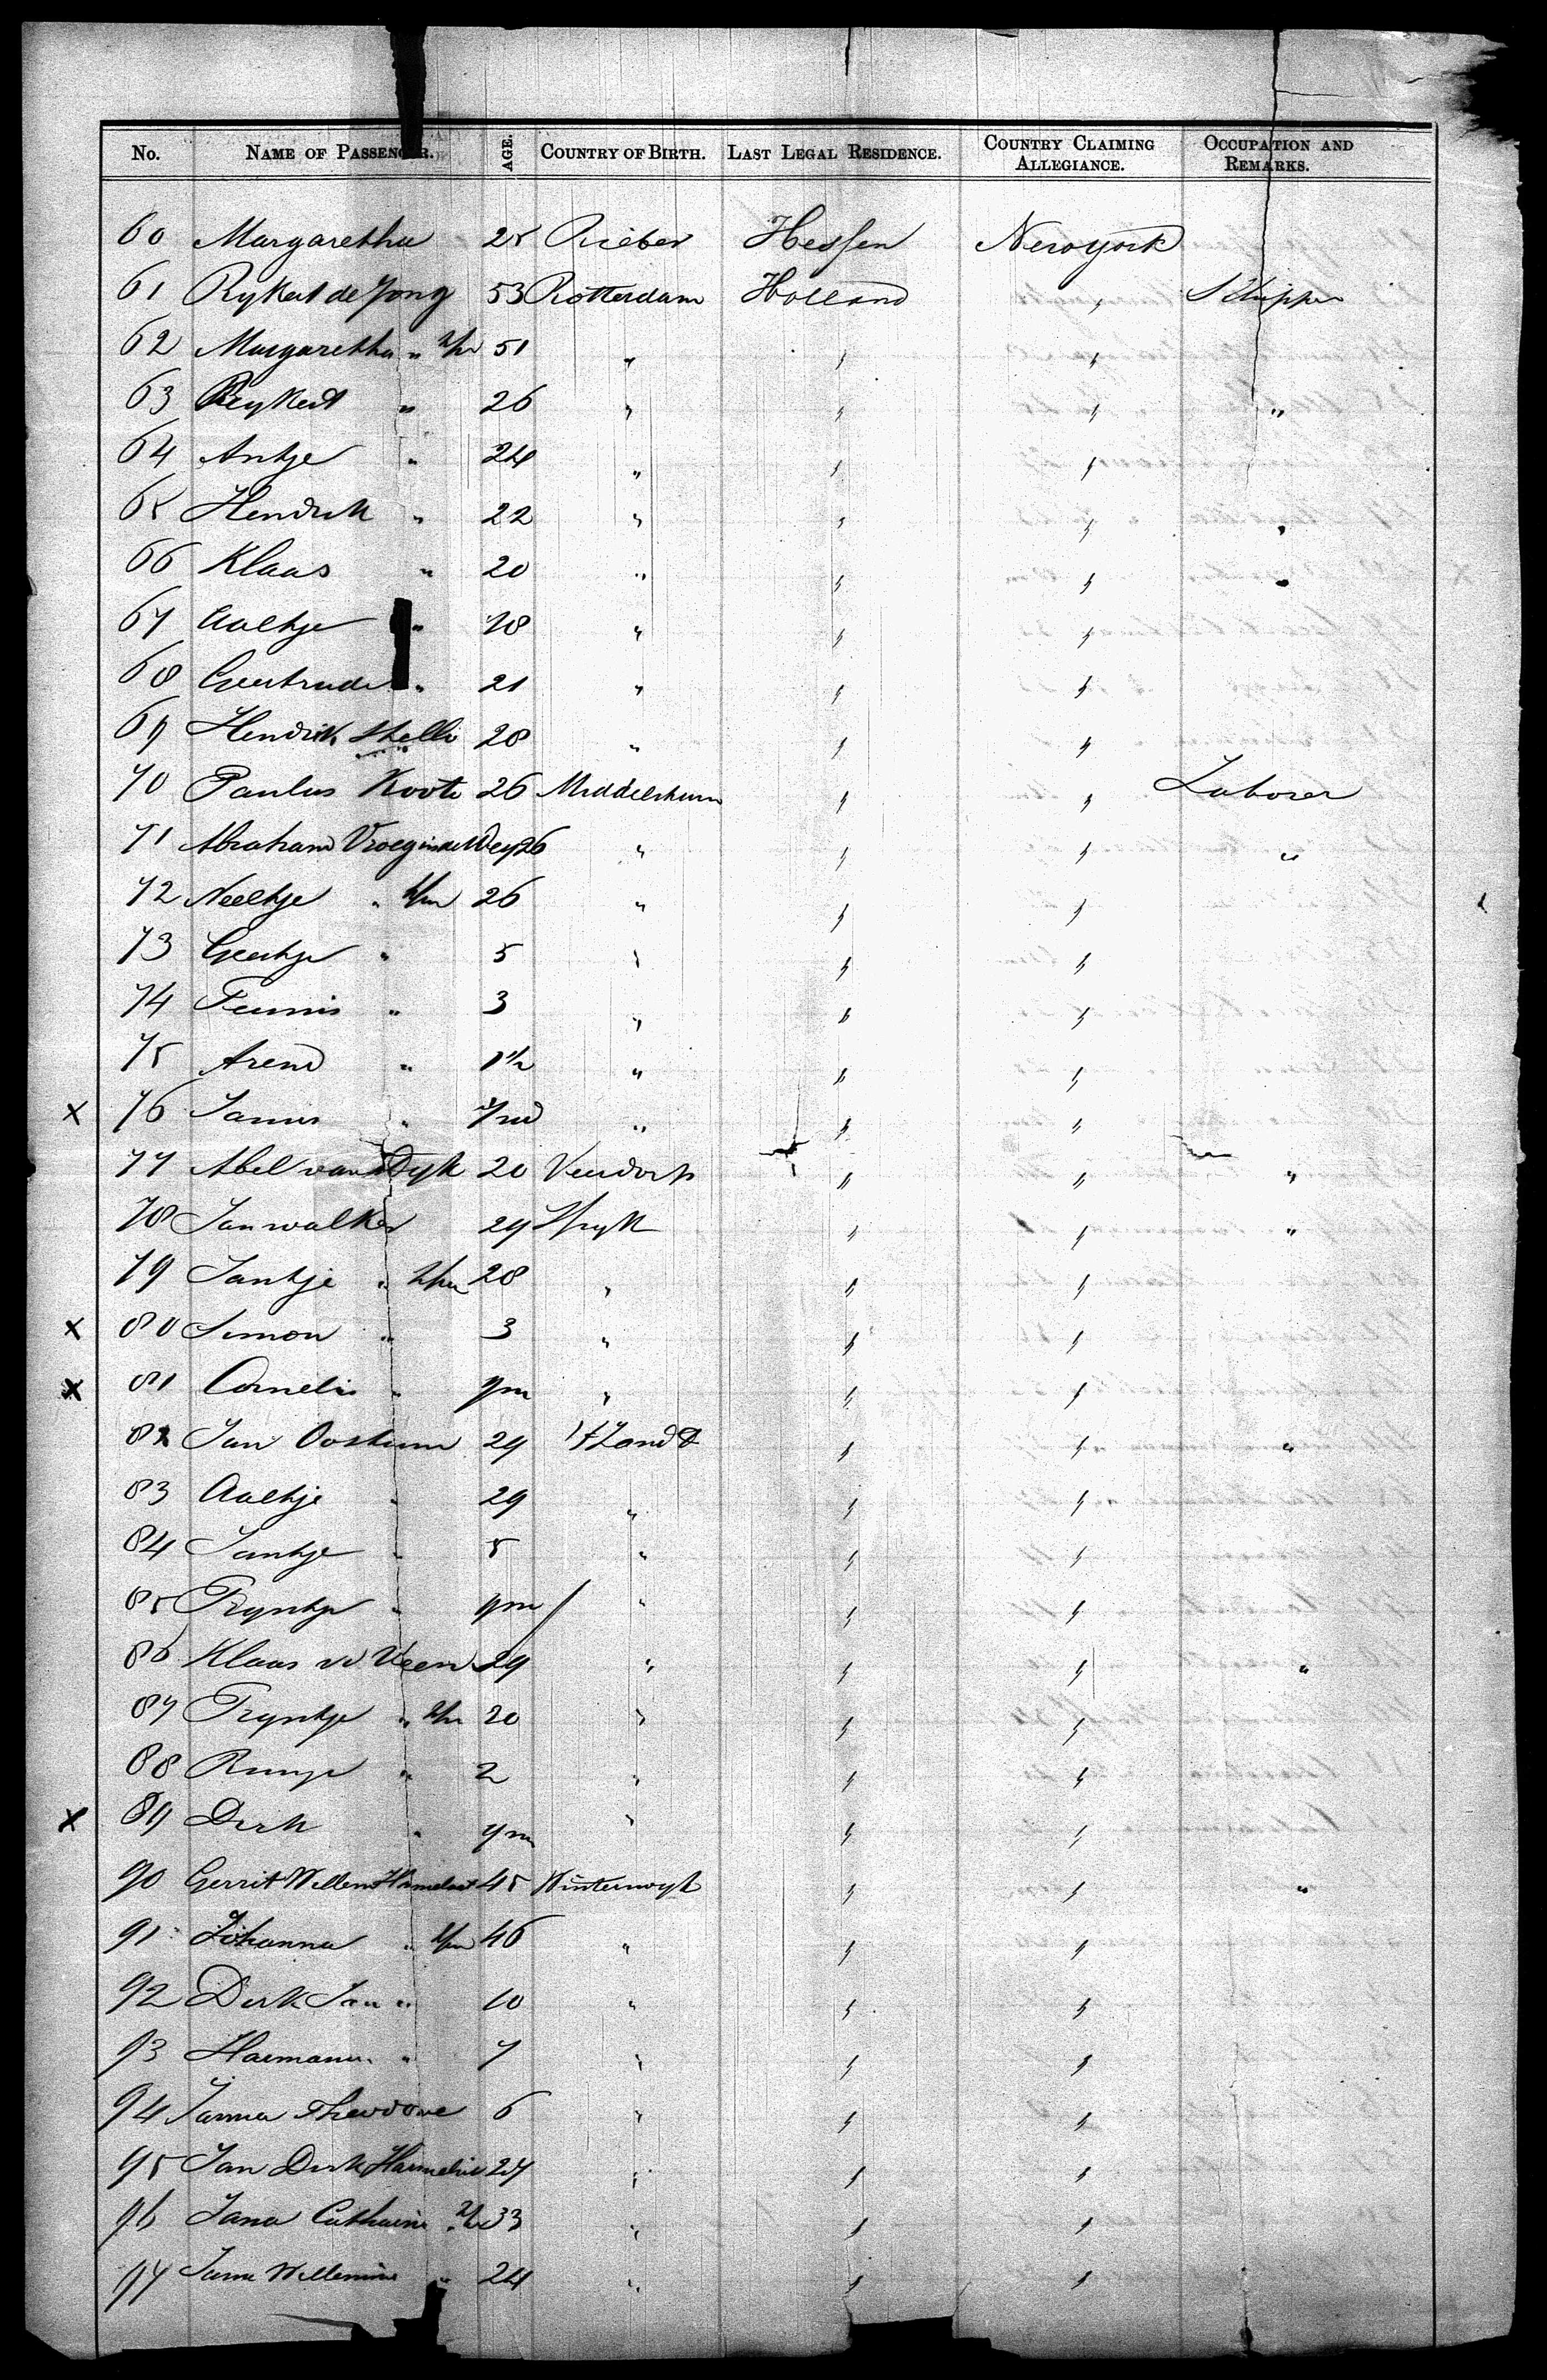 No. NAME OF PASSENGER. AGE. COUNTRY OF BIRTH. LAST LEGAL RESIDENCE. COUNTRY CLAIMING ALLEGIANCE. OCCUPATION AND REMARKS.
60 Margaretha 25 Rieber Hessen New york
61 Rykert de Jong 53 Rotterdam Holland " Skipper
62 Margaretha " 51 " " "
63 Reykert " 26 " " " "
64 Antje " 24 " " "
65 Hendrik " 22 " " " "
66 Klaas " 20 " " " "
67 Aaltje " 18 " " "
68 Geertrude " 21 " " "
69 Hendrik 28 " " "
70 Paulus Koote 26 " " Laborer
71 Abraham Vroegindewey 26 " " " "
72 Neeltje " 26 " " "
73 Geertje " 5 " " "
74 Teunis " 3 " " "
75 Arend " 1½ " " "
x 76 " " " "
77 Abel van Dyk 20 " " "
78 Jan walker 29 " " "
79 Jantje " 28 " " "
x 80 Simon " 3 " " "
x 81 Cornelis " 9m " " "
82 Jan 29 't Zandt " " "
83 Aaltje " 29 " " "
84 Jantje " 5 " " "
85 Tryntje " 9m " " "
86 Klaas vd Veen 29 " " " "
87 Tryntje " 20 " " "
88 " 2 " " "
x 89 Dirk " 9m " " "
90 Gerrit Willem 45 Winterwyk " " "
91 Johanna " 46 " " "
92 Dirk Jan " 10 " " "
93 Harmanus " 7 " " "
94 Janna Theodore 6 " " "
95 Jan Dirk 27 " " "
96 Jana Catharine " 33 " " "
97 Jana Willemina " 24 " " "